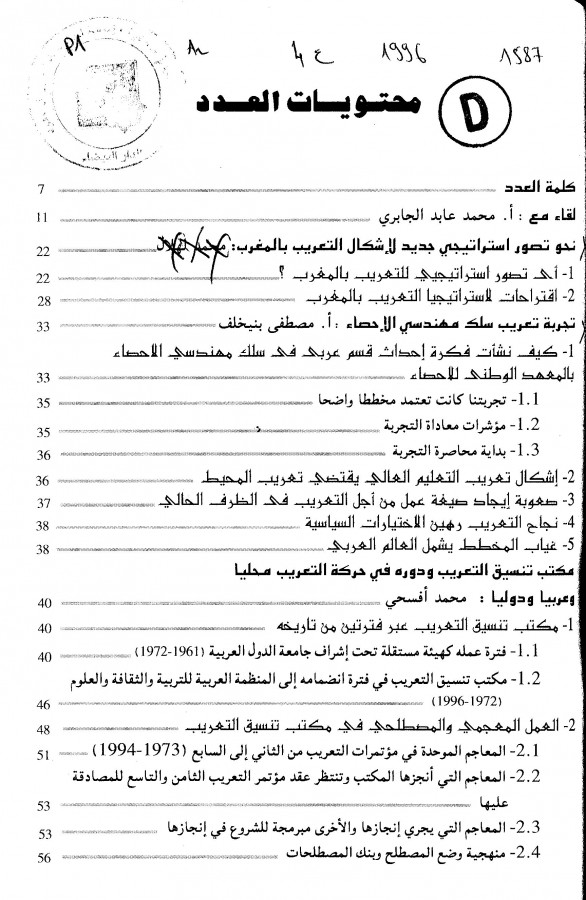 P1 An 4 ع 1996 1587
محتويات العدد D
الدار البيضاء
كلمة العدد 7
لقاء مع : أ. محمد عابد الجابري 11
نحو تصور استراتيجي جديد لإشكال التعريب بالمغرب: محمد 22
1- أي تصور استراتيجي للتعريب بالمغرب ؟ 22
2- اقتراحات لاستراتيجيا التعريب بالمغرب 28
تجربة تعريب سلك مهندسي الإحصاء : أ. مصطفى بنيخلف 33
1- كيف نشأت فكرة إحداث قسم عربي في سلك مهندسي الاحصاء
بالمعهد الوطني للاحصاء 33
1.1- تجربتنا كانت تعتمد مخططا واضحا 35
1.2- مؤشرات معاداة التجربة 35
1.3- بداية محاصرة التجربة 36
2- إشكال تعريب التعليم العالي يقتضي تعريب المحيط 36
3- صعوبة إيجاد صيغة عمل من أجل التعريب في الظرف الحالي 37
4- نجاح التعريب رهين الاختيارات السياسية 38
5- غياب المخطط يشمل العالم العربي 38
مكتب تنسيق التعريب ودوره في حركة التعريب محليا
وعربيا ودوليا : محمد أفسحي 40
1- مكتب تنسيق التعريب عبر فترتين من تاريخه 40
1.1- فترة عمله كهيئة مستقلة تحت إشراف جامعة الدول العربية (1961-1972) 40
1.2- مكتب تنسيق التعريب في فترة انضمامه إلى المنظمة العربية للتربية والثقافة والعلوم
(1972-1996) 46
2- العمل المعجمي والمصطلحي في مكتب تنسيق التعريب 48
2.1- المعاجم الموحدة في مؤتمرات التعريب من الثاني إلى السابع (1973-1994) 51
2.2- المعاجم التي أنجزها المكتب وتنتظر عقد مؤتمر التعريب الثامن والتاسع للمصادقة
عليها 53
2.3- المعاجم التي يجري إنجازها والأخرى مبرمجة للشروع في إنجازها 53
2.4- منهجية وضع المصطلح وبنك المصطلحات 56